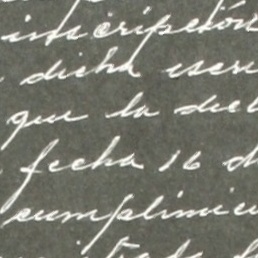 inscripción
dicha escri
que la dicl
fecha 16 d
cumplimien